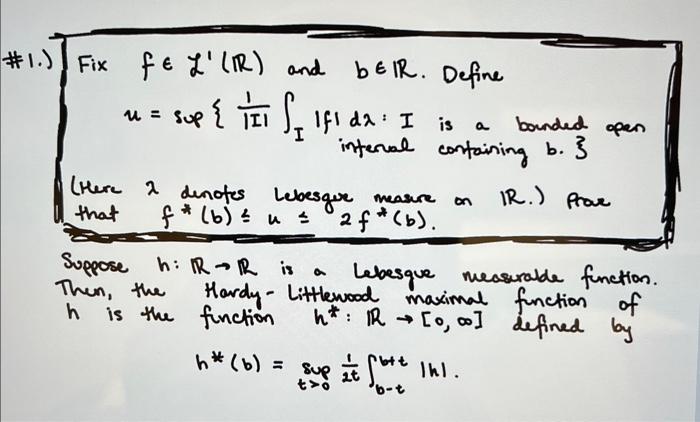 #1.) Fix f ∈ ℒ'(ℝ) and b ∈ ℝ. Define
u = sup { 1/|I| ∫_I |f| dλ : I is a bounded open
interval containing b. }
(Here λ denotes Lebesgue measure on ℝ.) Prove
that f*(b) ≤ u ≤ 2f*(b).
Suppose h: ℝ → ℝ is a Lebesgue measurable function.
Then, the Hardy-Littlewood maximal function of
h is the function h*: ℝ → [0, ∞] defined by
h*(b) = sup_{t>0} 1/2t ∫_{b-t}^{b+t} |h|.